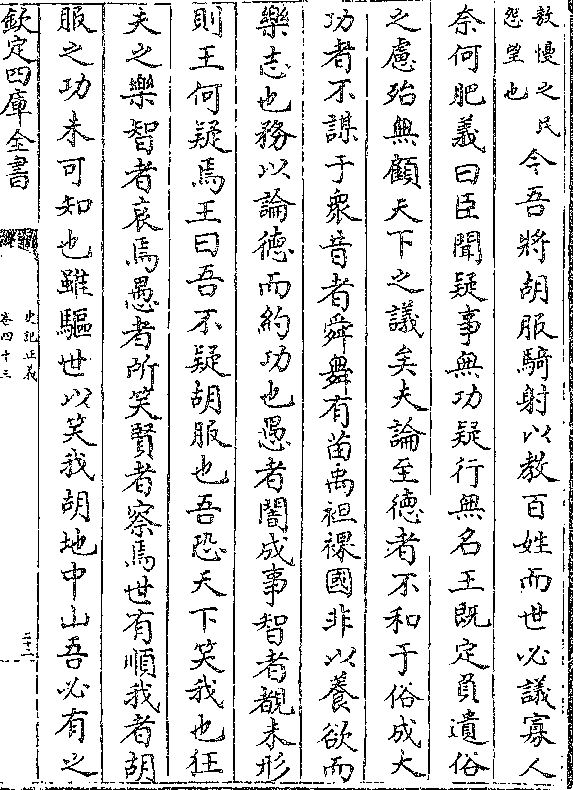 敖慢之民
怨望也
今吾將胡服騎射以教百姓而世必議寡人
奈何肥義曰臣聞疑事無功疑行無名王既定負遺俗
之慮殆無顧天下之議矣夫論至德者不和于俗成大
功者不謀于衆昔者舜舞有苗禹袒裸國非以養欲而
樂志也務以論德而約功也愚者闇成事智者覩未形
則王何疑焉王曰吾不疑胡服也吾恐天下笑我也狂
夫之樂智者哀焉愚者所笑賢者察焉世有順我者胡
服之功未可知也雖驅世以笑我胡地中山吾必有之
欽定四庫全書
史記正義
卷四十三